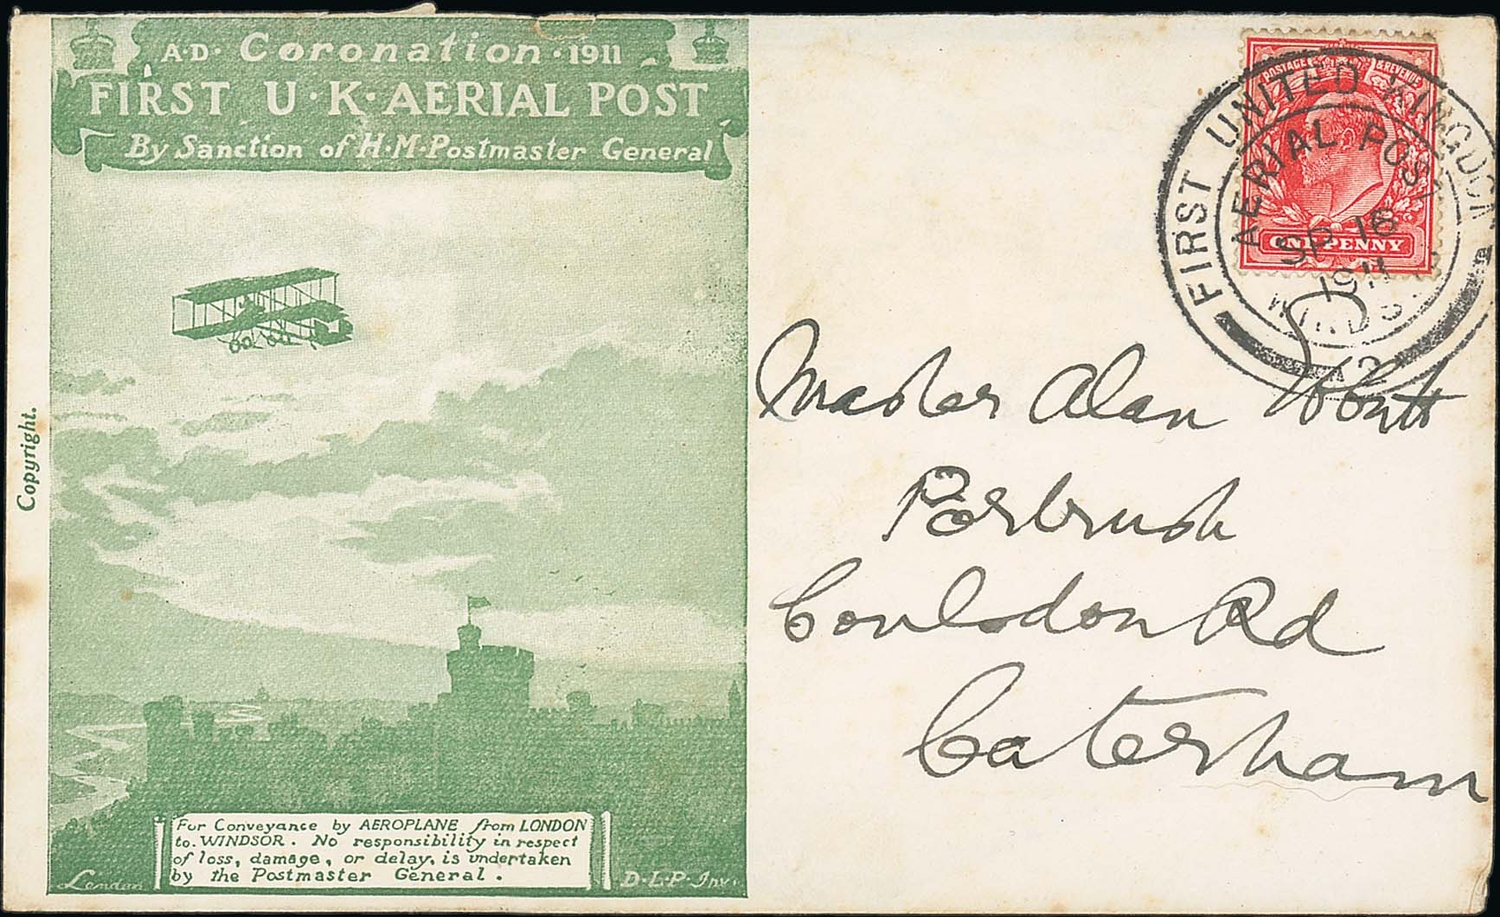 A·D· Coronation · 1911
FIRST U·K·AERIAL POST
By Sanction of H·M·Postmaster General
Copyright.
For Conveyance by AEROPLANE from LONDON
to WINDSOR. No responsibility in respect
of loss, damage, or delay, is undertaken
by the Postmaster General.
London
D·L·P·Inv.
POSTAGE & REVENUE
ONE PENNY
FIRST UNITED KINGDOM
AERIAL POST
SP 16
1911
WINDSOR
2
Master Alan
Coulsdon Rd
Caterham